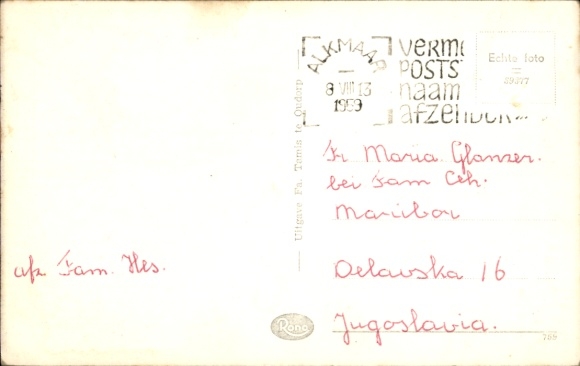 ALKMAAR
8 VIII 13
1959
VERM
POSTS
naam
afzender
Echte foto
Uitgave Fa. Tamis te Oudorp
Fr Maria Glanzer.
bei Fam Ceh.
Maribor
Delavska 16
Jugoslavia.
afz Fam. Hes.
Rono